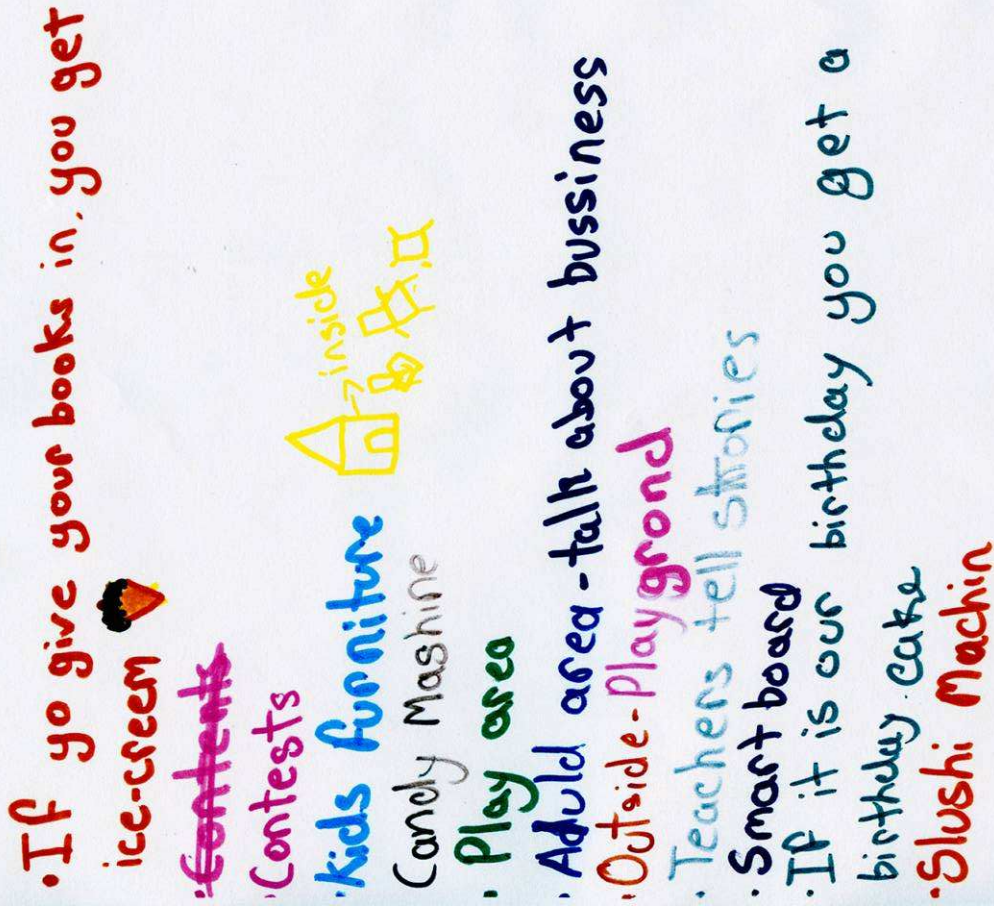 ·If yo give your books in, you get
ice-creem
·Contents
·Contests
·Kids furniture
inside
Candy Mashine
·Play area
·Aduld area-talk about bussiness
·Outside-Playgrond
·Teachers tell stories
·Smart board
·If it is our birthday you get a
birthday cake
·Slushi Machin